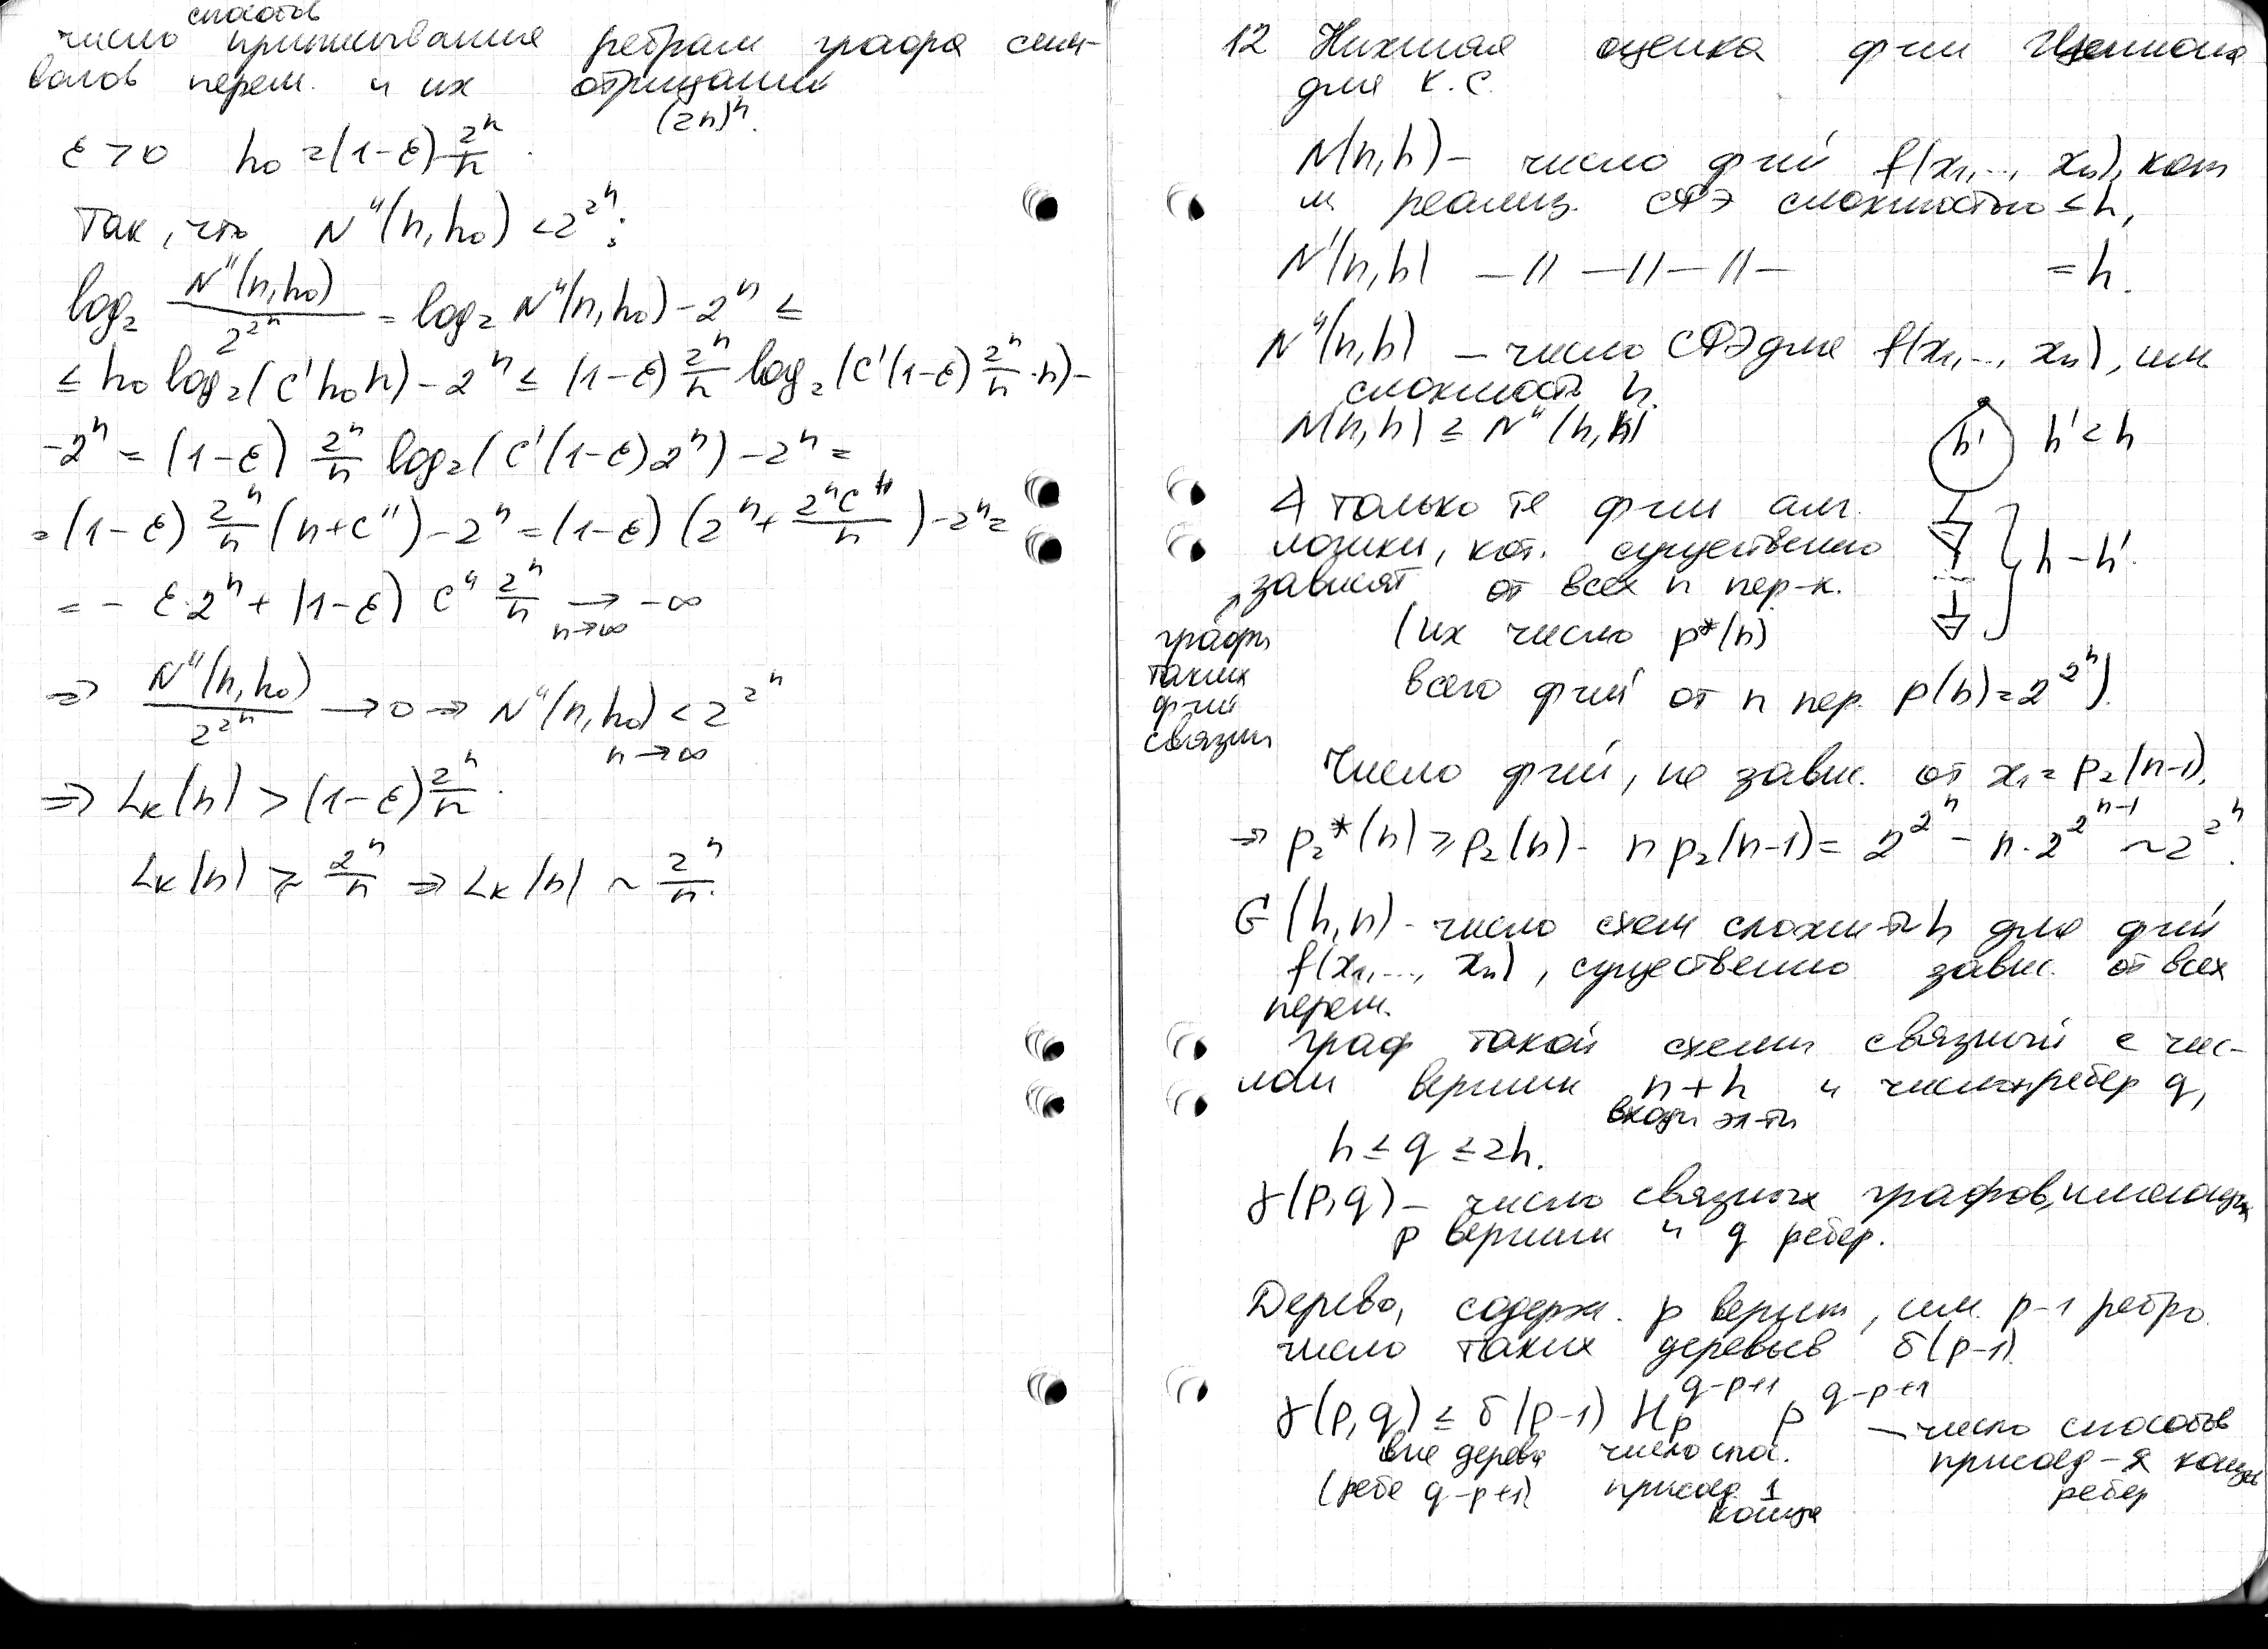 способов
число приписывание ребрам графа сим-
волов перем. и их отрицаний
(2n)^h.
ε > 0 h₀ = (1-ε) 2^n/n.
Так, что N''(n,h₀) < 2^2^n:
log₂ N''(n,h₀)/2^2^n = log₂ N''(n,h₀) - 2^n ≤
≤ h₀ log₂(C'h₀n) - 2^n ≤ (1-ε) 2^n/n log₂(C'(1-ε) 2^n/n ·n) -
-2^n = (1-ε) 2^n/n log₂(C'(1-ε)2^n) - 2^n =
= (1-ε) 2^n/n (n+C'') - 2^n = (1-ε)(2^n + 2^n C''/n) - 2^n =
= - ε·2^n + (1-ε) C'' 2^n/n → -∞
n→∞
⇒ N''(n,h₀)/2^2^n → 0 ⇒ N''(n,h₀) < 2^2^n
n→∞
⇒ L_K(n) > (1-ε) 2^n/n.
L_K(n) ≥ 2^n/n ⇒ L_K(n) ~ 2^n/n.
12 Нижняя оценка ф-ии Шеннона
для К.С.
N(n,h) - число ф-ий f(x₁,..., xₙ), кот
реализ. СФЭ сложностью ≤ h,
N'(n,h) —//—//—//— = h.
N''(n,h) - число СФЭ для f(x₁,..., xₙ), им
сложность h.
N(n,h) ≤ N''(n,h)
h' h' < h
только те ф-ии алг.
логики, кот. существенно
h-h'.
зависят от всех n пер-х.
(их число p*(n)
графы
таких
ф-ий
связны
всего ф-ий от n пер. p(n) = 2^2^n).
Число ф-ий, не завис. от x₁ = p₂(n-1).
⇒ p₂*(n) ≥ p₂(n) - n p₂(n-1) = 2^2^n - n·2^2^(n-1) ~ 2^2^n.
G(h,n) - число схем сложн-ти h для ф-ий
f(x₁,..., xₙ), существенно завис. от всех
перем.
Граф такой схемы связный с чис-
лом вершин n+h и числом ребер q,
входы эл-ты
h ≤ q ≤ 2h.
γ(p,q) - число связных графов, имеющих
p вершин и q ребер.
Дерево, содерж. p верш, им. p-1 ребро
число таких деревьев δ(p-1)
γ(p,q) ≤ δ(p-1) H_p^(q-p+1) p^(q-p+1) — число способов
вне дерева число спос. присоед-я конца
(ребе q-p+1) присоед. 1 ребер
конца